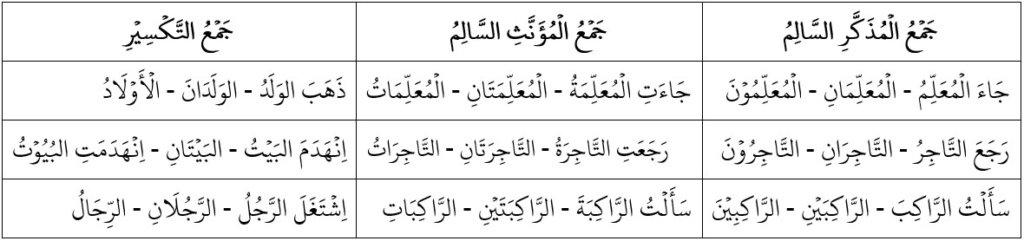 جَمْعُ الْمُذَكَّرِ السَّالِمُ
جَمْعُ الْمُؤَنَّثِ السَّالِمُ
جَمْعُ التَّكْسِيْرِ
جَاءَ الْمُعَلِّمُ - الْمُعَلِّمَانِ - الْمُعَلِّمُوْنَ
جَاءَتِ الْمُعَلِّمَةُ - الْمُعَلِّمَتَانِ - الْمُعَلِّمَاتُ
ذَهَبَ الوَلَدُ - الوَلَدَانَ - الْأَوْلَادُ
رَجَعَ التَّاجِرُ - التَّاجِرَانِ - التَّاجِرُوْنَ
رَجَعَتِ التَّاجِرَةُ - التَّاجِرَتَانِ - التَّاجِرَاتُ
اِنْهَدَمَ البَيْتُ - البَيْتَانِ - اِنْهَدَمَتِ البُيُوْتُ
سَأَلْتُ الرَّاكِبَ - الرَّاكِبَيْنِ - الرَّاكِبِيْنَ
سَأَلْتُ الرَّاكِبَةَ - الرَّاكِبَتَيْنِ - الرَّاكِبَاتِ
اِشْتَغَلَ الرَّجُلُ - الرَّجُلَانِ - الرِّجَالُ